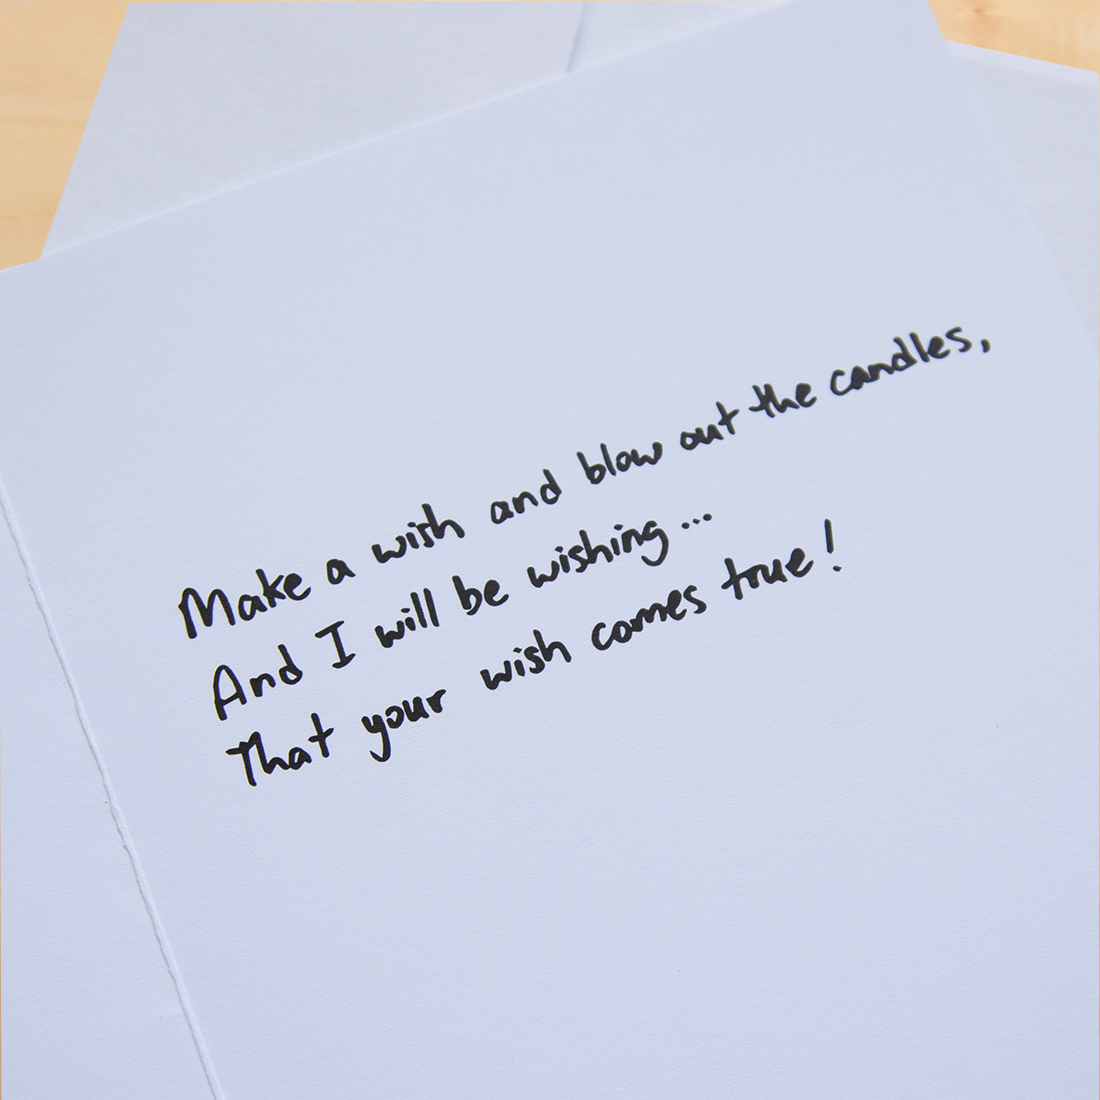 Make a wish and blow out the candles,
And I will be wishing...
That your wish comes true!